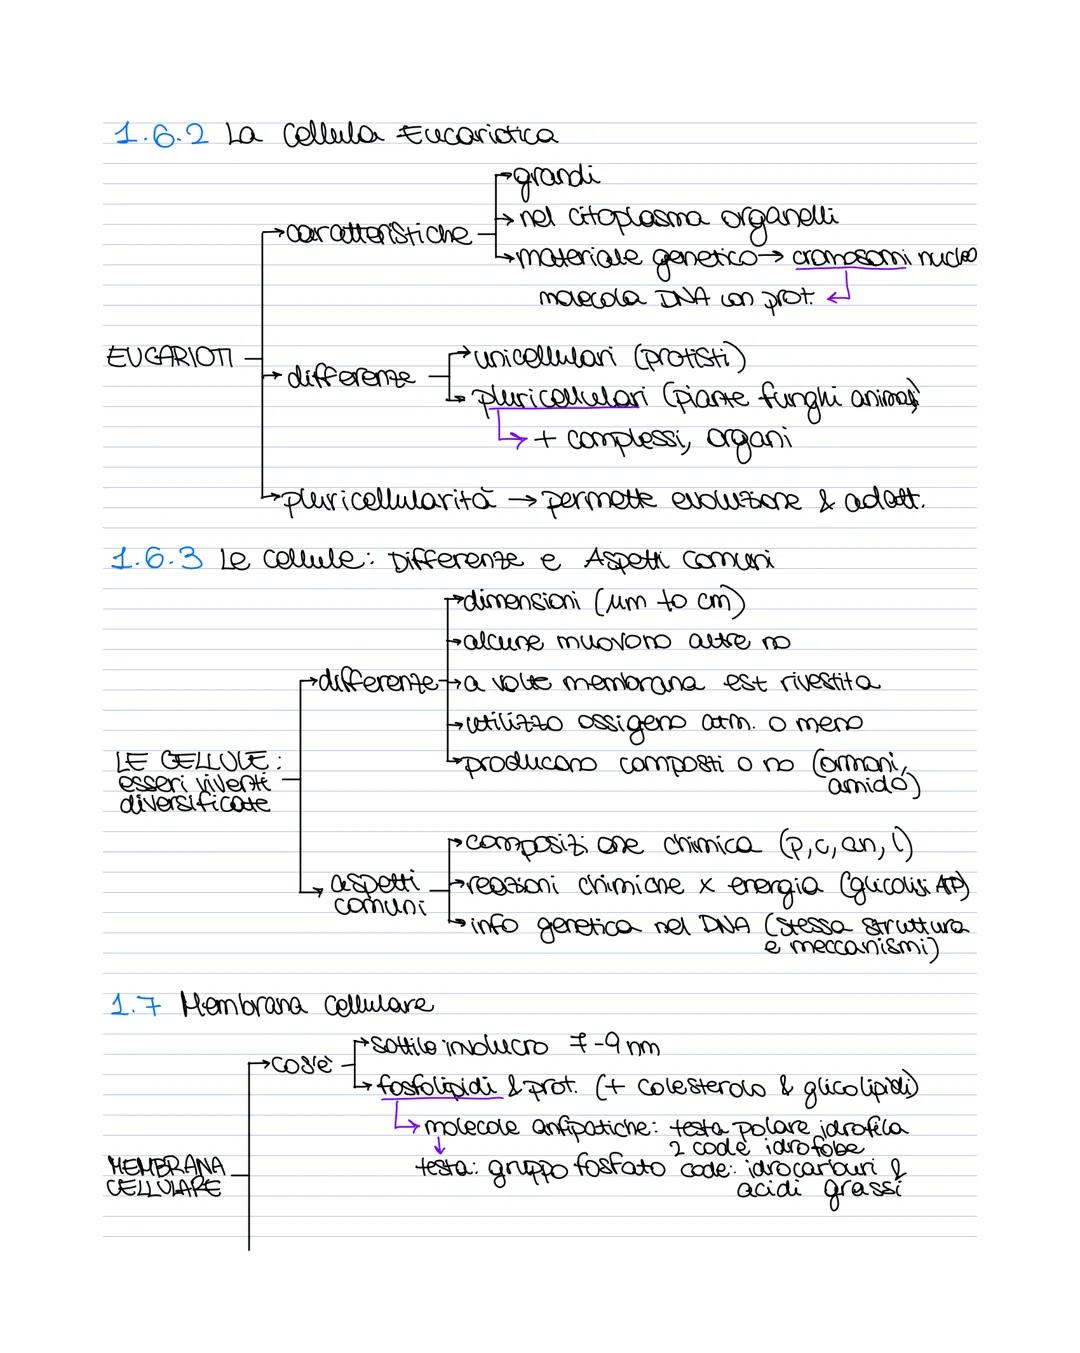 1.6.2 La Cellula Eucariotica
→grandi
→nel citoplasma organelli
→caratteristiche
→materiale genetico→ cromosomi nucleo
molecola DNA con prot.
EUCARIOTI
→unicellulari (protisti)
→differenze
→pluricellulari (piante funghi animali)
→+ complessi, organi
→pluricellularità →permette evoluzione & adatt.
1.6.3 Le cellule: Differenze e Aspetti Comuni
→dimensioni (µm to cm)
→alcune muovono altre no
→differenze→a volte membrana est rivestita
→utilizzo ossigeno atm. o meno
LE CELLULE:
→producono composti o no (ormoni,
esseri viventi
amido)
diversificate
→composizione chimica (p,c,an,l)
→aspetti
→reazioni chimiche x energia (glicolisi ATP)
comuni
→info genetica nel DNA (stessa struttura
e meccanismi)
1.7 Membrana Cellulare
→sottile involucro 7-9 nm
→cos'è
→fosfolipidi & prot. (+ colesterolo & glicolipidi)
→molecole anfipatiche: testa polare idrofila
2 code idrofobe
MEMBRANA
testa: gruppo fosfato code: idrocarburi &
CELLULARE
acidi grassi